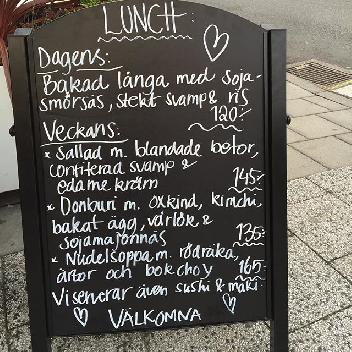 LUNCH:
Dagens:
Bakad långa med soja-
smörsås, stekt svamp & ris
120:-
Veckans:
* Sallad m. blandade betor,
confiterad svamp &
edamekräm 145:-
* Donburi m. oxkind, kimchi,
bakat ägg, vårlök &
sojamajonnäs 135:-
* Nudelsoppa m. rödräka,
ärtor och bokchoy 165:-
Vi serverar även sushi & maki!
VÄLKOMNA